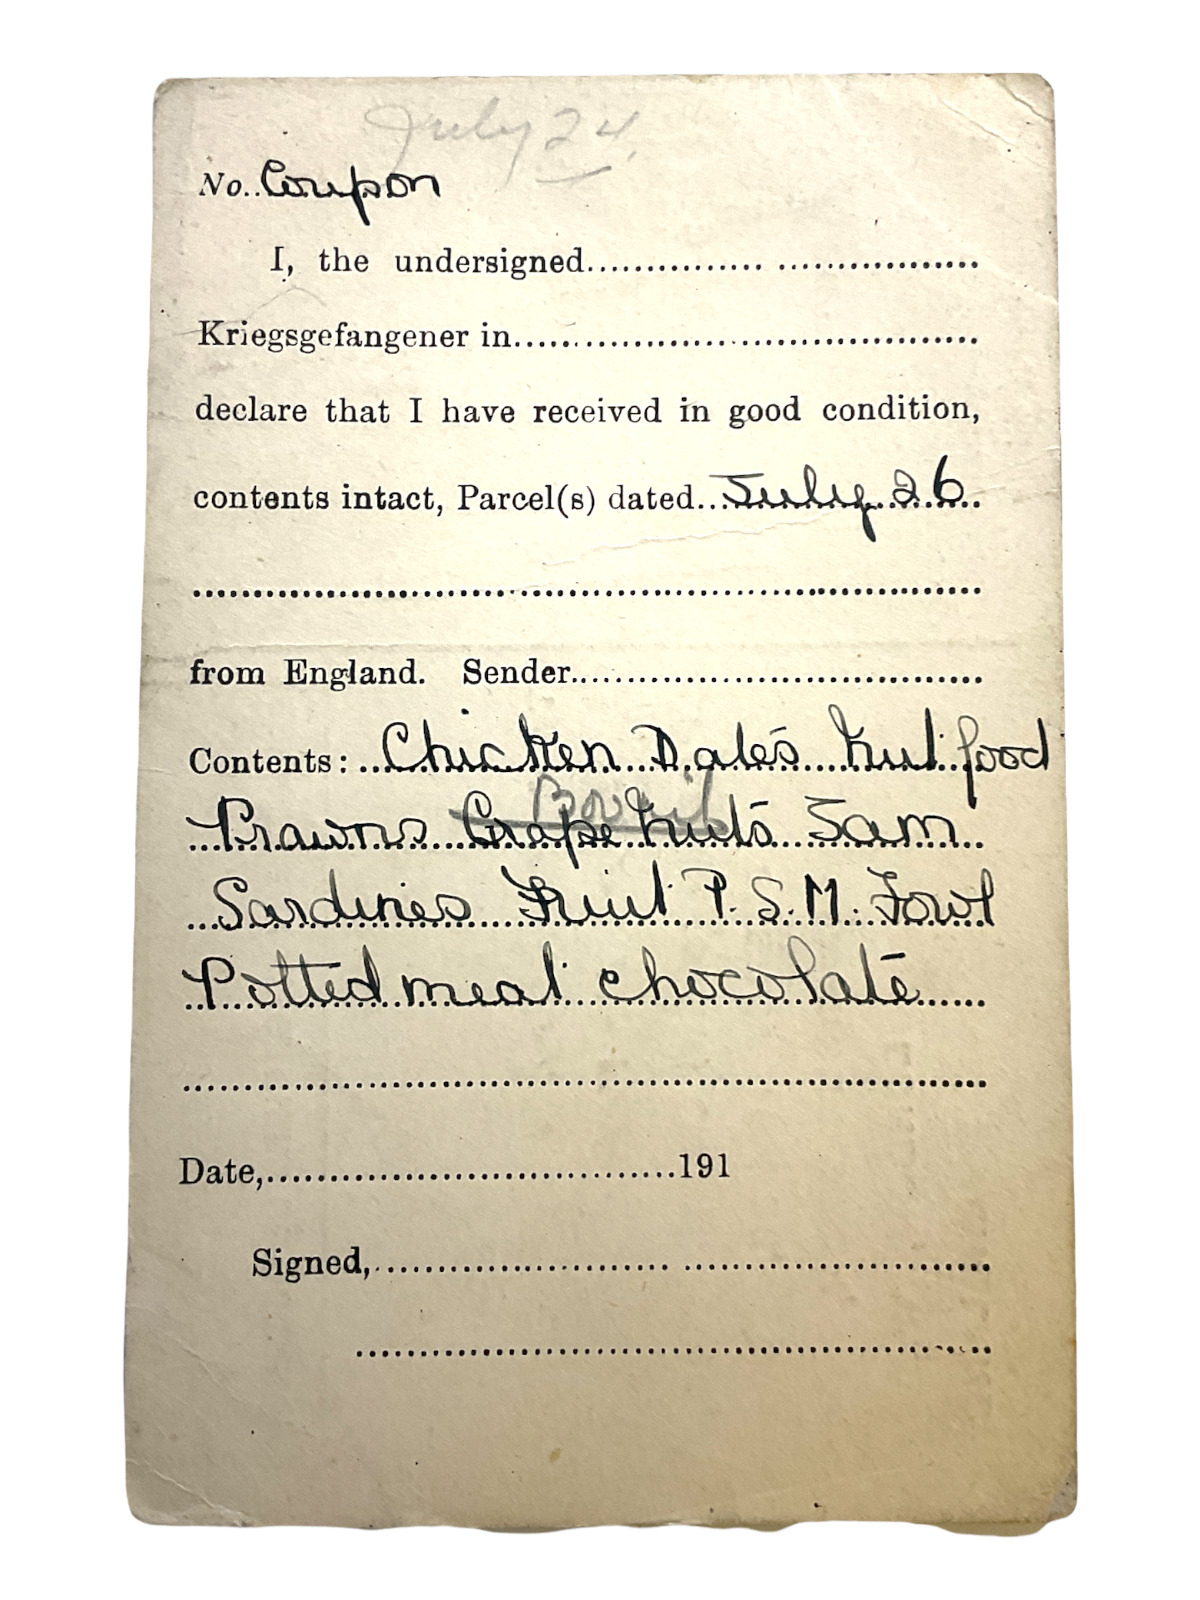 July 24.
No. Coupon
I, the undersigned.............................
Kriegsgefangener in.............................
declare that I have received in good condition,
contents intact, Parcel(s) dated...July 26..
.............................
from England. Sender.............................
Contents: Chicken Dates Nut food
Bovril
Prawns Grape Nuts Jam
Sardines Fruit P.S.M. Fowl
Potted meat chocolate
.............................
Date,.............................191
Signed,.............................
.............................